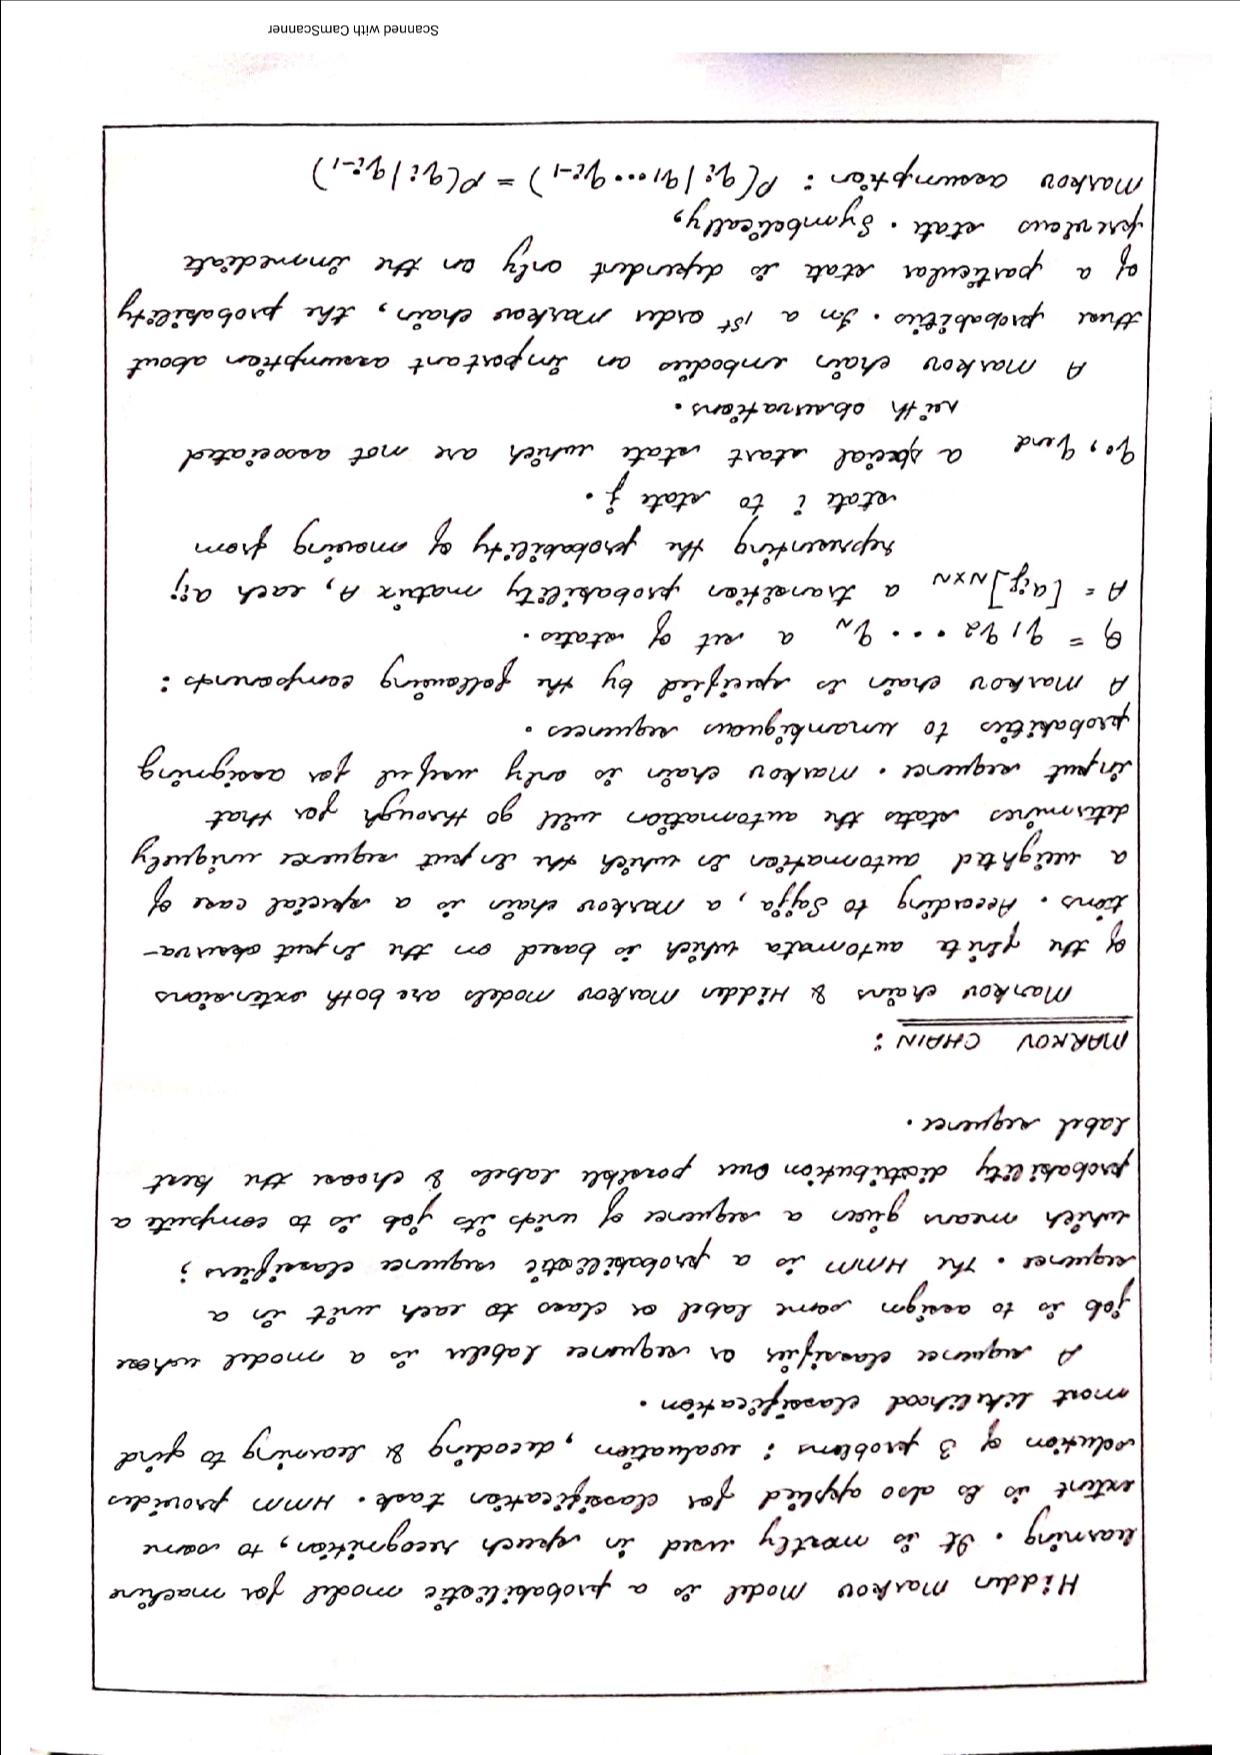 Hidden Markov Model is a probabilistic model for machine
learning. It is mostly used in speech recognition, to some
extent is is also applied for classification task. HMM provides
solution of 3 problems : evaluation, decoding & learning to find
most likelihood classification.
A sequence classifier or sequence labeler is a model whose
job is to assign some label or class to each unit in a
sequence. The HMM is a probabilistic sequence classifiers ;
which means given a sequence of units its job is to compute a
probability distribution over possible labels & choose the best
label sequence.
MARKOV CHAIN :
Markov chains & Hidden Markov models are both extensions
of the finite automata which is based on the input observa-
tions. According to Sajja, a Markov chain is a special case of
a weighted automation in which the input sequence uniquely
determines states the automation will go through for that
input sequence. Markov chain is only useful for assigning
probabilities to unambiguous sequences.
A Markov chain is specified by the following components :
Q = q1 q2 . . . qN a set of states.
A = [aij]NxN a transition probability matrix A, each aij
representing the probability of moving from
state i to state j.
q0, qend a special start state which are not associated
with observations.
A Markov chain embodies an important assumption about
these probabilities. In a 1st order Markov chain, the probability
of a particular state is dependent only on the immediate
previous state. Symbolically,
Markov assumption : P(qi | q1....qi-1) = P(qi | qi-1)
Scanned with CamScanner